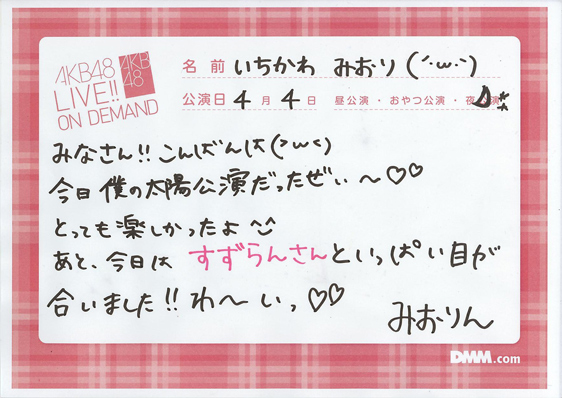 AKB48
LIVE!!
ON DEMAND
AKB
48
名前 いちかわ みおり(´･ω･`)
公演日 4月4日 昼公演・おやつ公演・夜公演
みなさん!!こんばんは(>ω<)
今日僕の太陽公演だったぜぃ〜♡♡
とっても楽しかったよ
あと、今日は すずらんさんといっぱい目が
合いました!!わ〜いっ♡♡
みおりん
DMM.com